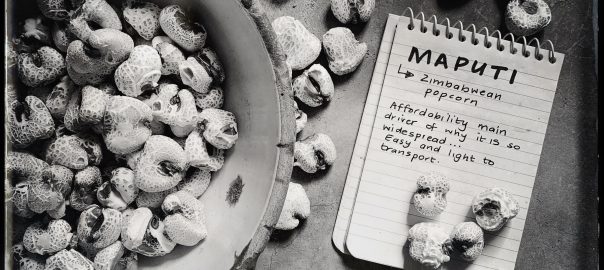 MAPUTI
↳ Zimbabwean
popcorn
Affordability main
driver of why it is so
widespread...
Easy and light to
transport.